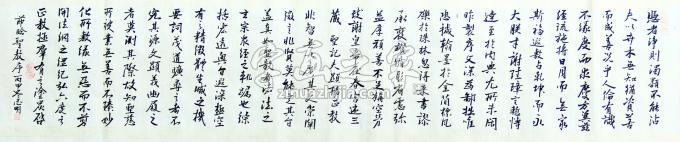 憑者淨則濁類不能沾
夫以卉木無知猶資善
而成善況乎人倫有識
不緣慶而求慶方冀茲
經流施將日月而無窮
斯福遐敷與乾坤而永
大朕才謝珪璋言慚博
達至於內典尤所未閑
昨製序文深為鄙拙唯
恐穢翰墨於金簡標瓦
礫於珠林忽得來書謬
承褒讚循躬省慮彌
益厚顏善不足稱空勞
致謝皇帝在春宮述三
藏聖記夫顯揚正教
非智無以廣其文崇闡
微言非賢莫能定其旨
蓋真如聖教者諸法之
玄宗眾經之軌躅也綜
括宏遠奧旨遐深極空
有之精微體生滅之機
要詞茂道曠尋之者不
究其源文顯義幽履之
者莫測其際故知聖慈
所被業無善而不臻妙
化所敷緣無惡而不翦
開法網之綱紀弘六度之
正教拯群有之塗炭啟
節臨聖教序丙申